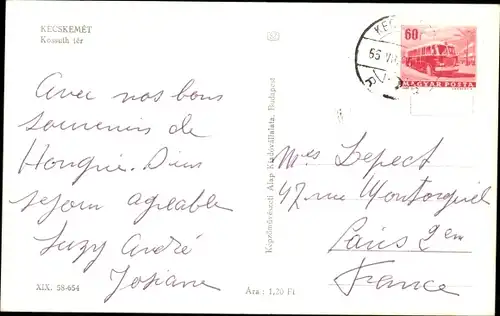 KECSKEMÉT
Kossuth tér
Avec nos bons
souvenirs de
Hongrie. Dieu
sejour agreable
Suzy André
Josiane
XIX. 58-654
Ára : 1,20 Ft
Képzőművészeti Alap Kiadóvállalata, Budapest
60f
MAGYAR POSTA
Mes Lepect
47 rue Montorgueil
Paris 2em
France